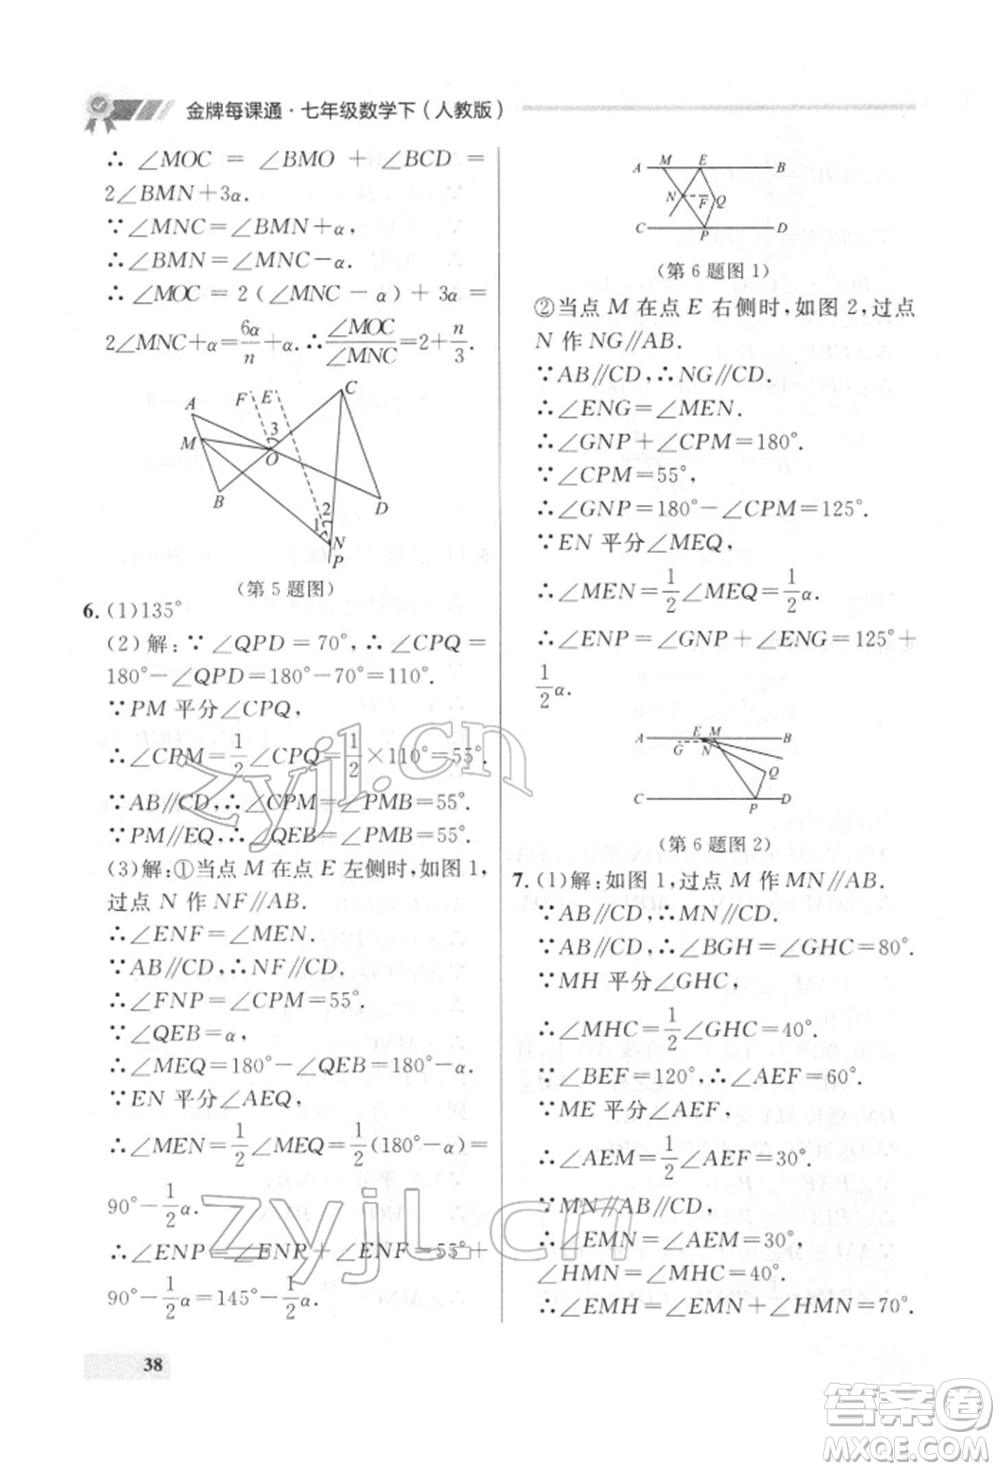 金牌每课通·七年级数学下（人教版）
∴ ∠MOC = ∠BMO + ∠BCD =
2∠BMN+3α.
∵∠MNC=∠BMN+α,
∴∠BMN=∠MNC-α.
∴∠MOC=2(∠MNC-α)+3α=
2∠MNC+α=6α/n+α.∴∠MOC/∠MNC=2+n/3.
A
F
E
C
3
M
O
B
D
2
1
N
P
(第 5 题图)
6. (1)135°
(2)解:∵∠QPD=70°,∴∠CPQ=
180°-∠QPD=180°-70°=110°.
∵PM 平分∠CPQ,
∴∠CPM=1/2∠CPQ=1/2×110°=55°.
∵AB∥CD,∴∠CPM=∠PMB=55°.
∵PM∥EQ,∴∠QEB=∠PMB=55°.
(3)解:①当点 M 在点 E 左侧时,如图 1,
过点 N 作 NF∥AB.
∴∠ENF=∠MEN.
∵AB∥CD,∴NF∥CD.
∴∠FNP=∠CPM=55°.
∵∠QEB=α,
∴∠MEQ=180°-∠QEB=180°-α.
∵EN 平分∠AEQ,
∴∠MEN=1/2∠MEQ=1/2(180°-α)=
90°-1/2α.
∴∠ENP=∠ENF+∠FNP=55°+
90°-1/2α=145°-1/2α.
38
A
M
E
B
N
F
Q
C
P
D
(第 6 题图 1)
②当点 M 在点 E 右侧时,如图 2,过点
N 作 NG∥AB.
∵AB∥CD,∴NG∥CD.
∴∠ENG=∠MEN.
∴∠GNP+∠CPM=180°.
∵∠CPM=55°,
∴∠GNP=180°-∠CPM=125°.
∵EN 平分∠MEQ,
∴∠MEN=1/2∠MEQ=1/2α.
∴∠ENP=∠GNP+∠ENG=125°+
1/2α.
A
E
M
B
G
N
Q
C
P
D
(第 6 题图 2)
7. (1)解:如图 1,过点 M 作 MN∥AB.
∵AB∥CD,∴MN∥CD.
∵AB∥CD,∴∠BGH=∠GHC=80°.
∵MH 平分∠GHC,
∴∠MHC=1/2∠GHC=40°.
∵∠BEF=120°,∴∠AEF=60°.
∵ME 平分∠AEF,
∴∠AEM=1/2∠AEF=30°.
∵MN∥AB∥CD,
∴∠EMN=∠AEM=30°,
∠HMN=∠MHC=40°.
∴∠EMH=∠EMN+∠HMN=70°.
zyjl.cn
zyjl.cn
答案圈
MXQE.COM